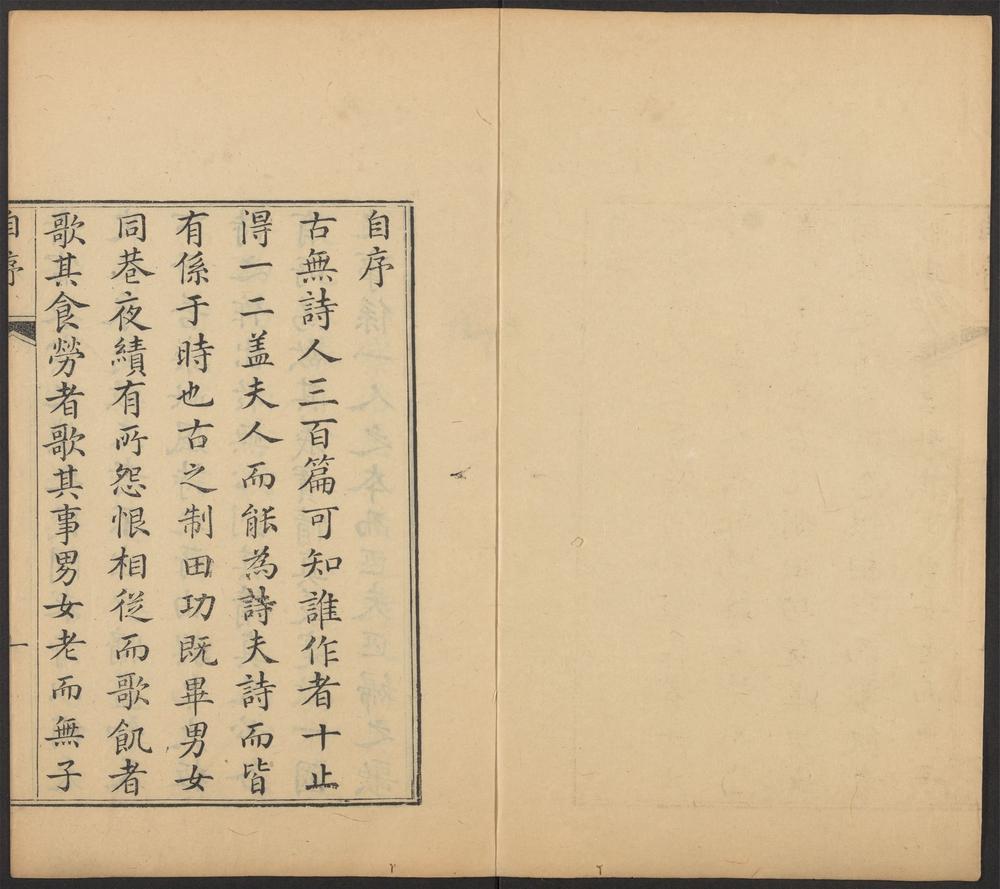 自序
古無詩人三百篇可知誰作者十止
得一二盖夫人而能為詩夫詩而皆
有係于時也古之制田功既畢男女
同巷夜績有所怨恨相從而歌飢者
歌其食勞者歌其事男女老而無子
自序
一